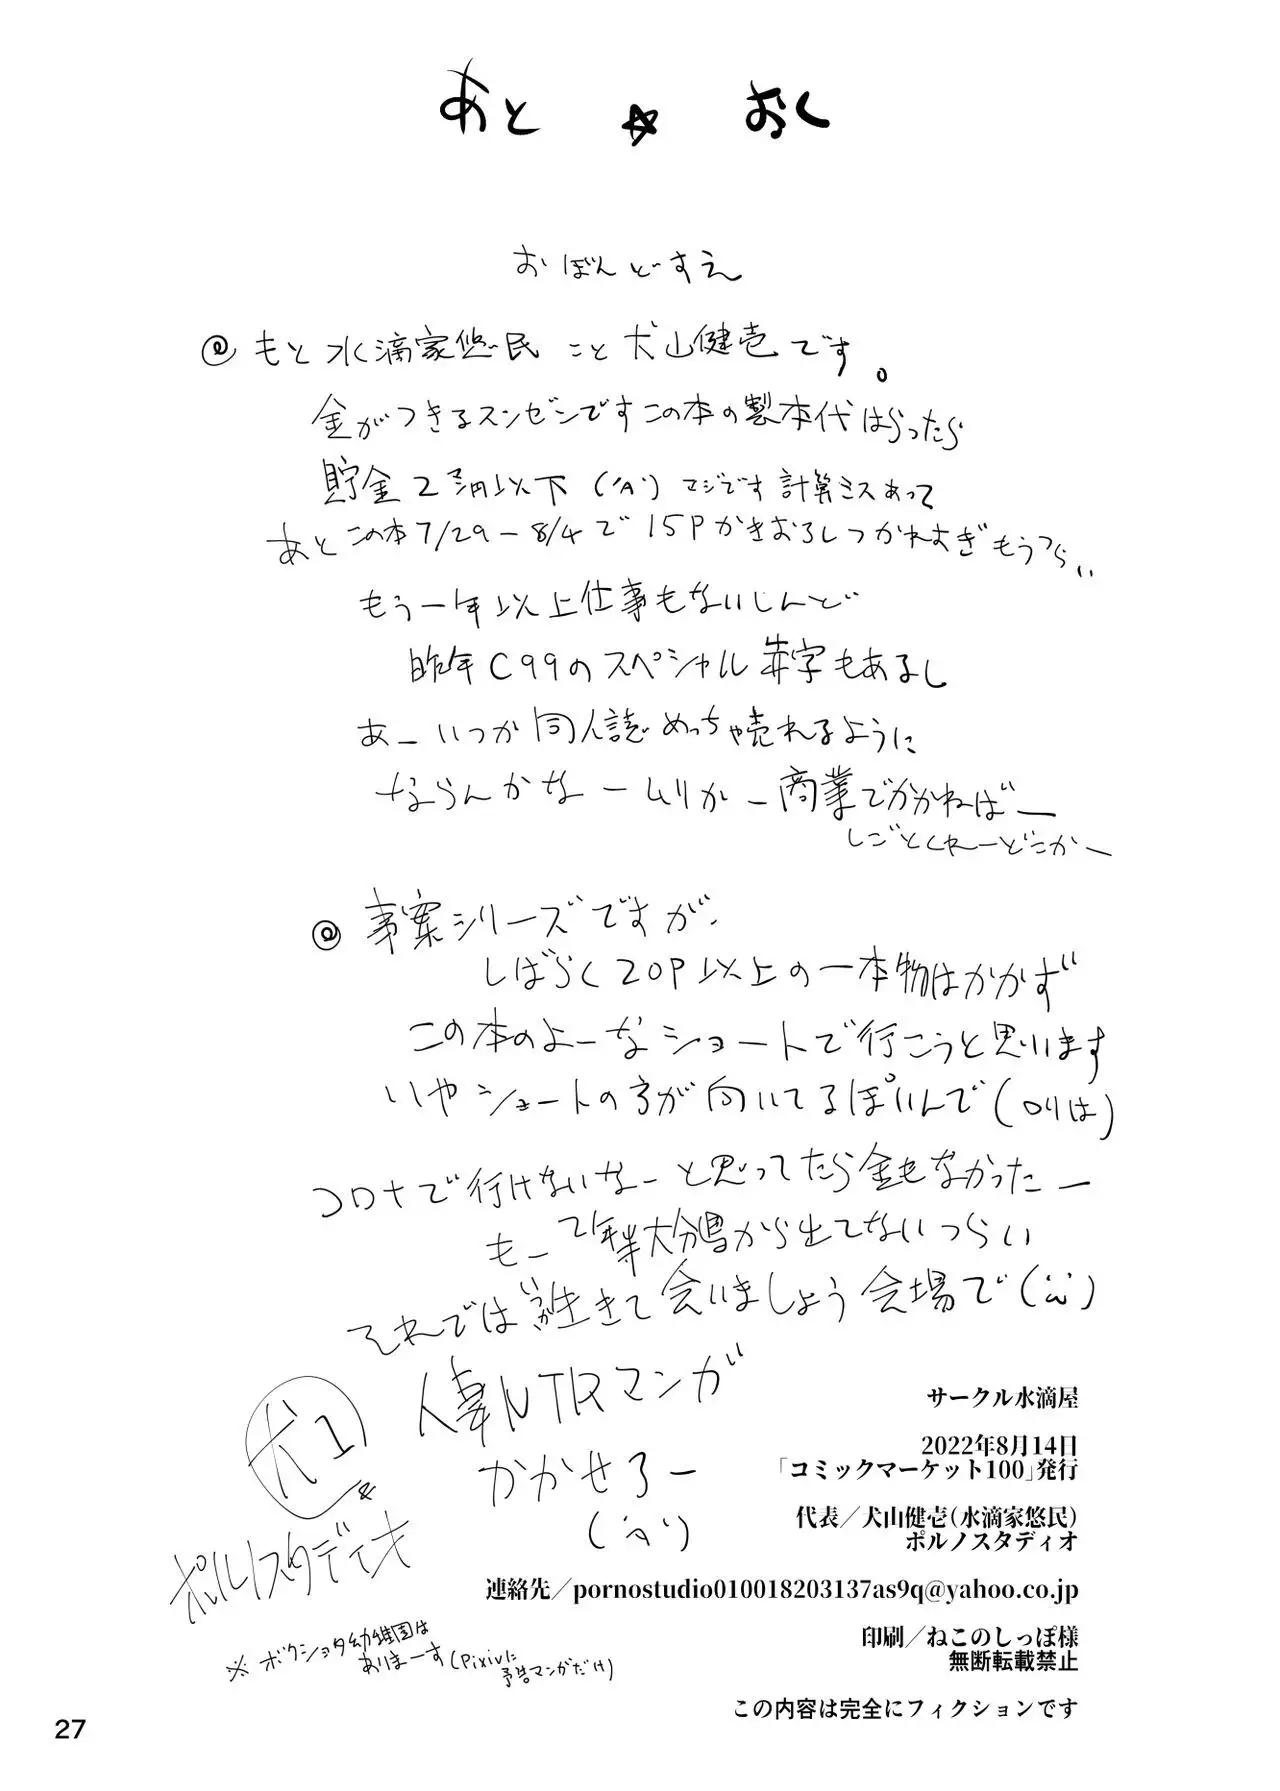 あと☆おく
おぼんどすえ
@ もと水滴家悠民こと犬山健壱です。
金がつきるスンゼンですこの本の製本代はらったら
貯金2万円以下('A`)マジです計算ミスあって
あとこの本7/29-8/4で15Pかきおろしつかれすぎもうつらい
もう一年以上仕事もないしんど
昨年C99のスペシャル赤字もあるし
あーいつか同人誌めっちゃ売れるように
ならんかなームリかー商業でかかねばー
しごとくれーどこかー
@ 事案シリーズですが、
しばらく20P以上の一本物はかかず
このホのよーなショートで行こうと思います
いやショートの方が向いてるぽいんで(ロリは)
コロナで行けないなーと思ってたら金もなかったー
もー2年半大分県から出てないつらい
それではいつか生きて会いましょう会場で(;ω;)
人妻NTRマンガ
かかせろー
('A`)
犬1
&
ポルノスタディオ
※ボクショタ幼稚園は
ありまーす(Pixivに
予告マンガだけ)
サークル水滴屋
2022年8月14日
「コミックマーケット100」発行
代表／犬山健壱(水滴家悠民)
ポルノスタディオ
連絡先／pornostudio010018203137as9q@yahoo.co.jp
印刷／ねこのしっぽ様
無断転載禁止
この内容は完全にフィクションです
27